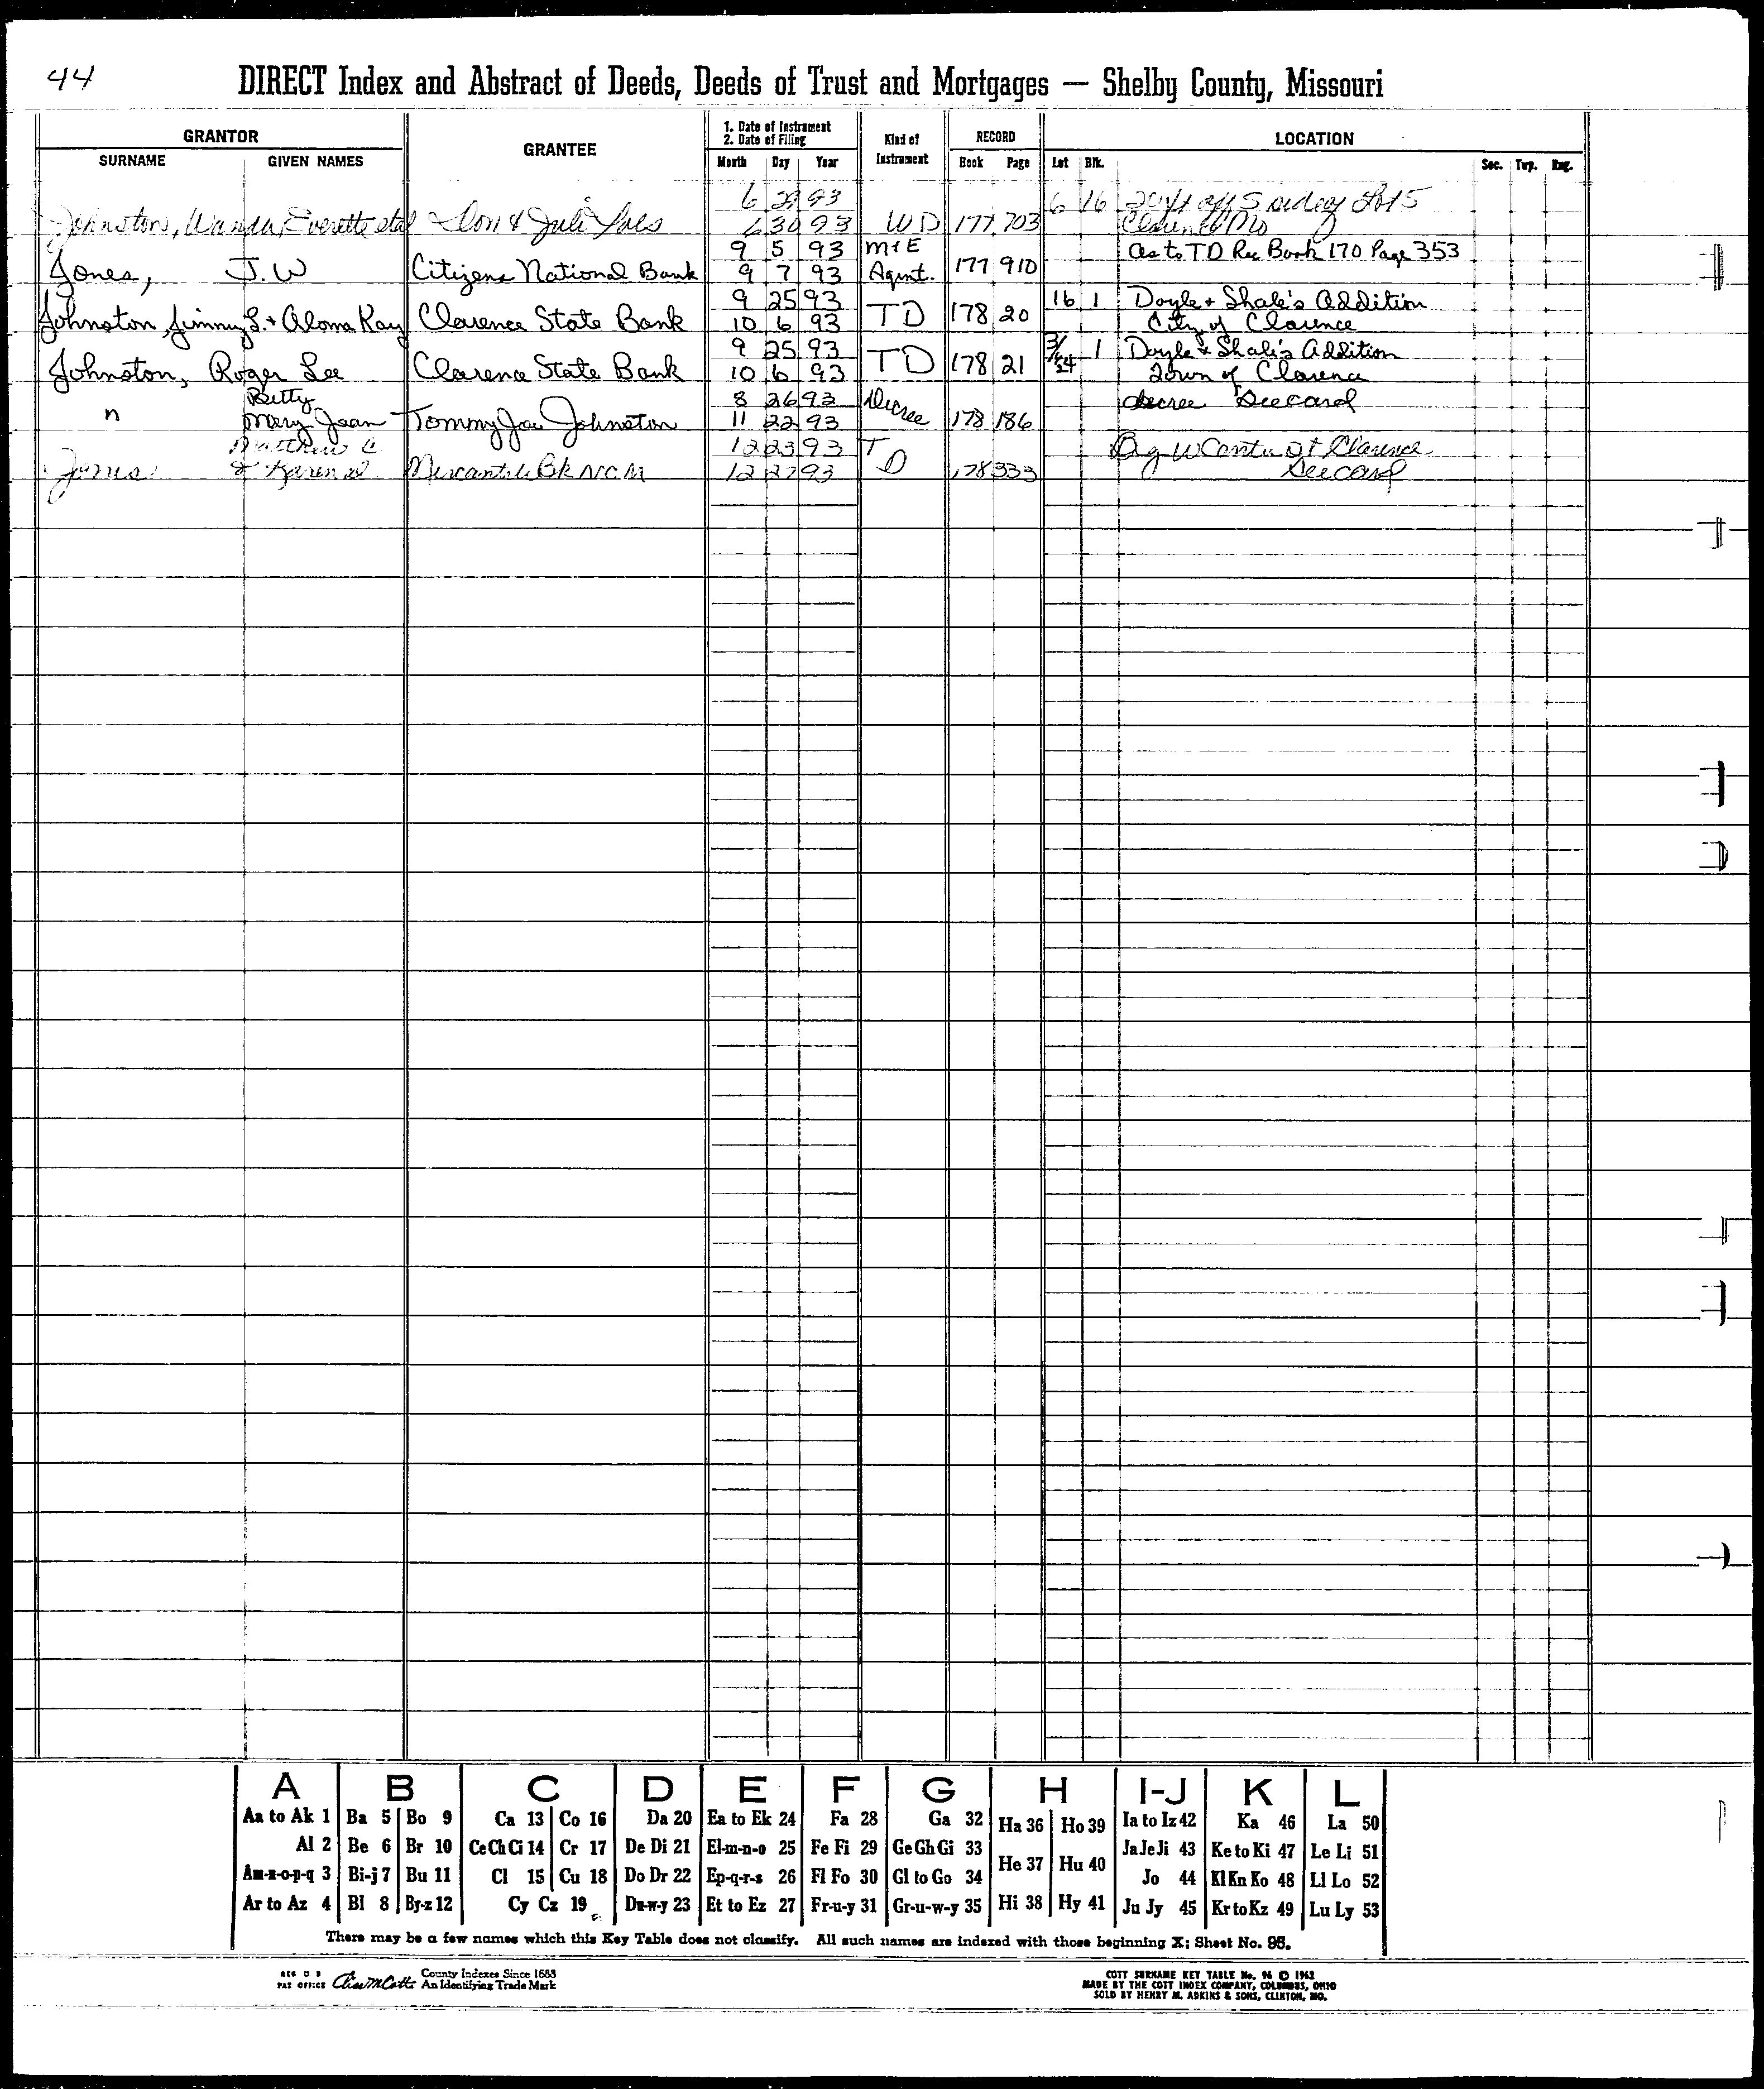 44
DIRECT Index and Abstract of Deeds, Deeds of Trust and Mortgages — Shelby County, Missouri
GRANTOR
SURNAME GIVEN NAMES
GRANTEE
1. Date of Instrument
2. Date of Filing
Month Day Year
Kind of
Instrument
RECORD
Book Page
LOCATION
Lot Blk. Sec. Twp. Rng.
6 29 93 6 16 20 ft off S side of Lot 5
Johnston, Wanda, Everette etal Don & Juli 6 30 93 WD 177 703 Clarence Mo
9 5 93 M+E As to TD Rec Book 170 Page 353
Jones, J.W Citizens National Bank 9 7 93 Agmt. 177 910
9 25 93 16 1 Doyle + Shale's Addition
Johnston, Jimmy L. + Aloma Kay Clarence State Bank 10 6 93 TD 178 20 City of Clarence
9 25 93 1 Doyle + Shale's Addition
Johnston, Roger Lee Clarence State Bank 10 6 93 TD 178 21 Town of Clarence
Betty 8 26 93 Decree decree See card
" Mary Jean Tommy Joe Johnston 11 22 93 178 186
Matthew C 12 23 93 T Bg W Center of Clarence
Jones & Karen Mercantile Bk NCM 12 27 93 D 178 333 See card
A B C D E F G H I-J K L
Aa to Ak 1 Ba 5 Bo 9 Ca 13 Co 16 Da 20 Ea to Ek 24 Fa 28 Ga 32 Ha 36 Ho 39 Ia to Iz 42 Ka 46 La 50
Al 2 Be 6 Br 10 Ce Ch Ci 14 Cr 17 De Di 21 El-m-n-o 25 Fe Fi 29 Ge Gh Gi 33 He 37 Hu 40 Ja Je Ji 43 Ke to Ki 47 Le Li 51
Am-n-o-p-q 3 Bi-j 7 Bu 11 Cl 15 Cu 18 Do Dr 22 Ep-q-r-s 26 Fl Fo 30 Gl to Go 34 Jo 44 Kl Kn Ko 48 Ll Lo 52
Ar to Az 4 Bl 8 By-z 12 Cy Cz 19 Du-w-y 23 Et to Ez 27 Fr-u-y 31 Gr-u-w-y 35 Hi 38 Hy 41 Ju Jy 45 Kr to Kz 49 Lu Ly 53
There may be a few names which this Key Table does not classify. All such names are indexed with those beginning X; Sheet No. 95.
PAT OFFICE
County Indexes Since 1888
An Identifying Trade Mark
COTT SURNAME KEY TABLE No. 96 © 1962
MADE BY THE COTT INDEX COMPANY, COLUMBUS, OHIO
SOLD BY HENRY M. ADKINS & SONS, CLINTON, MO.